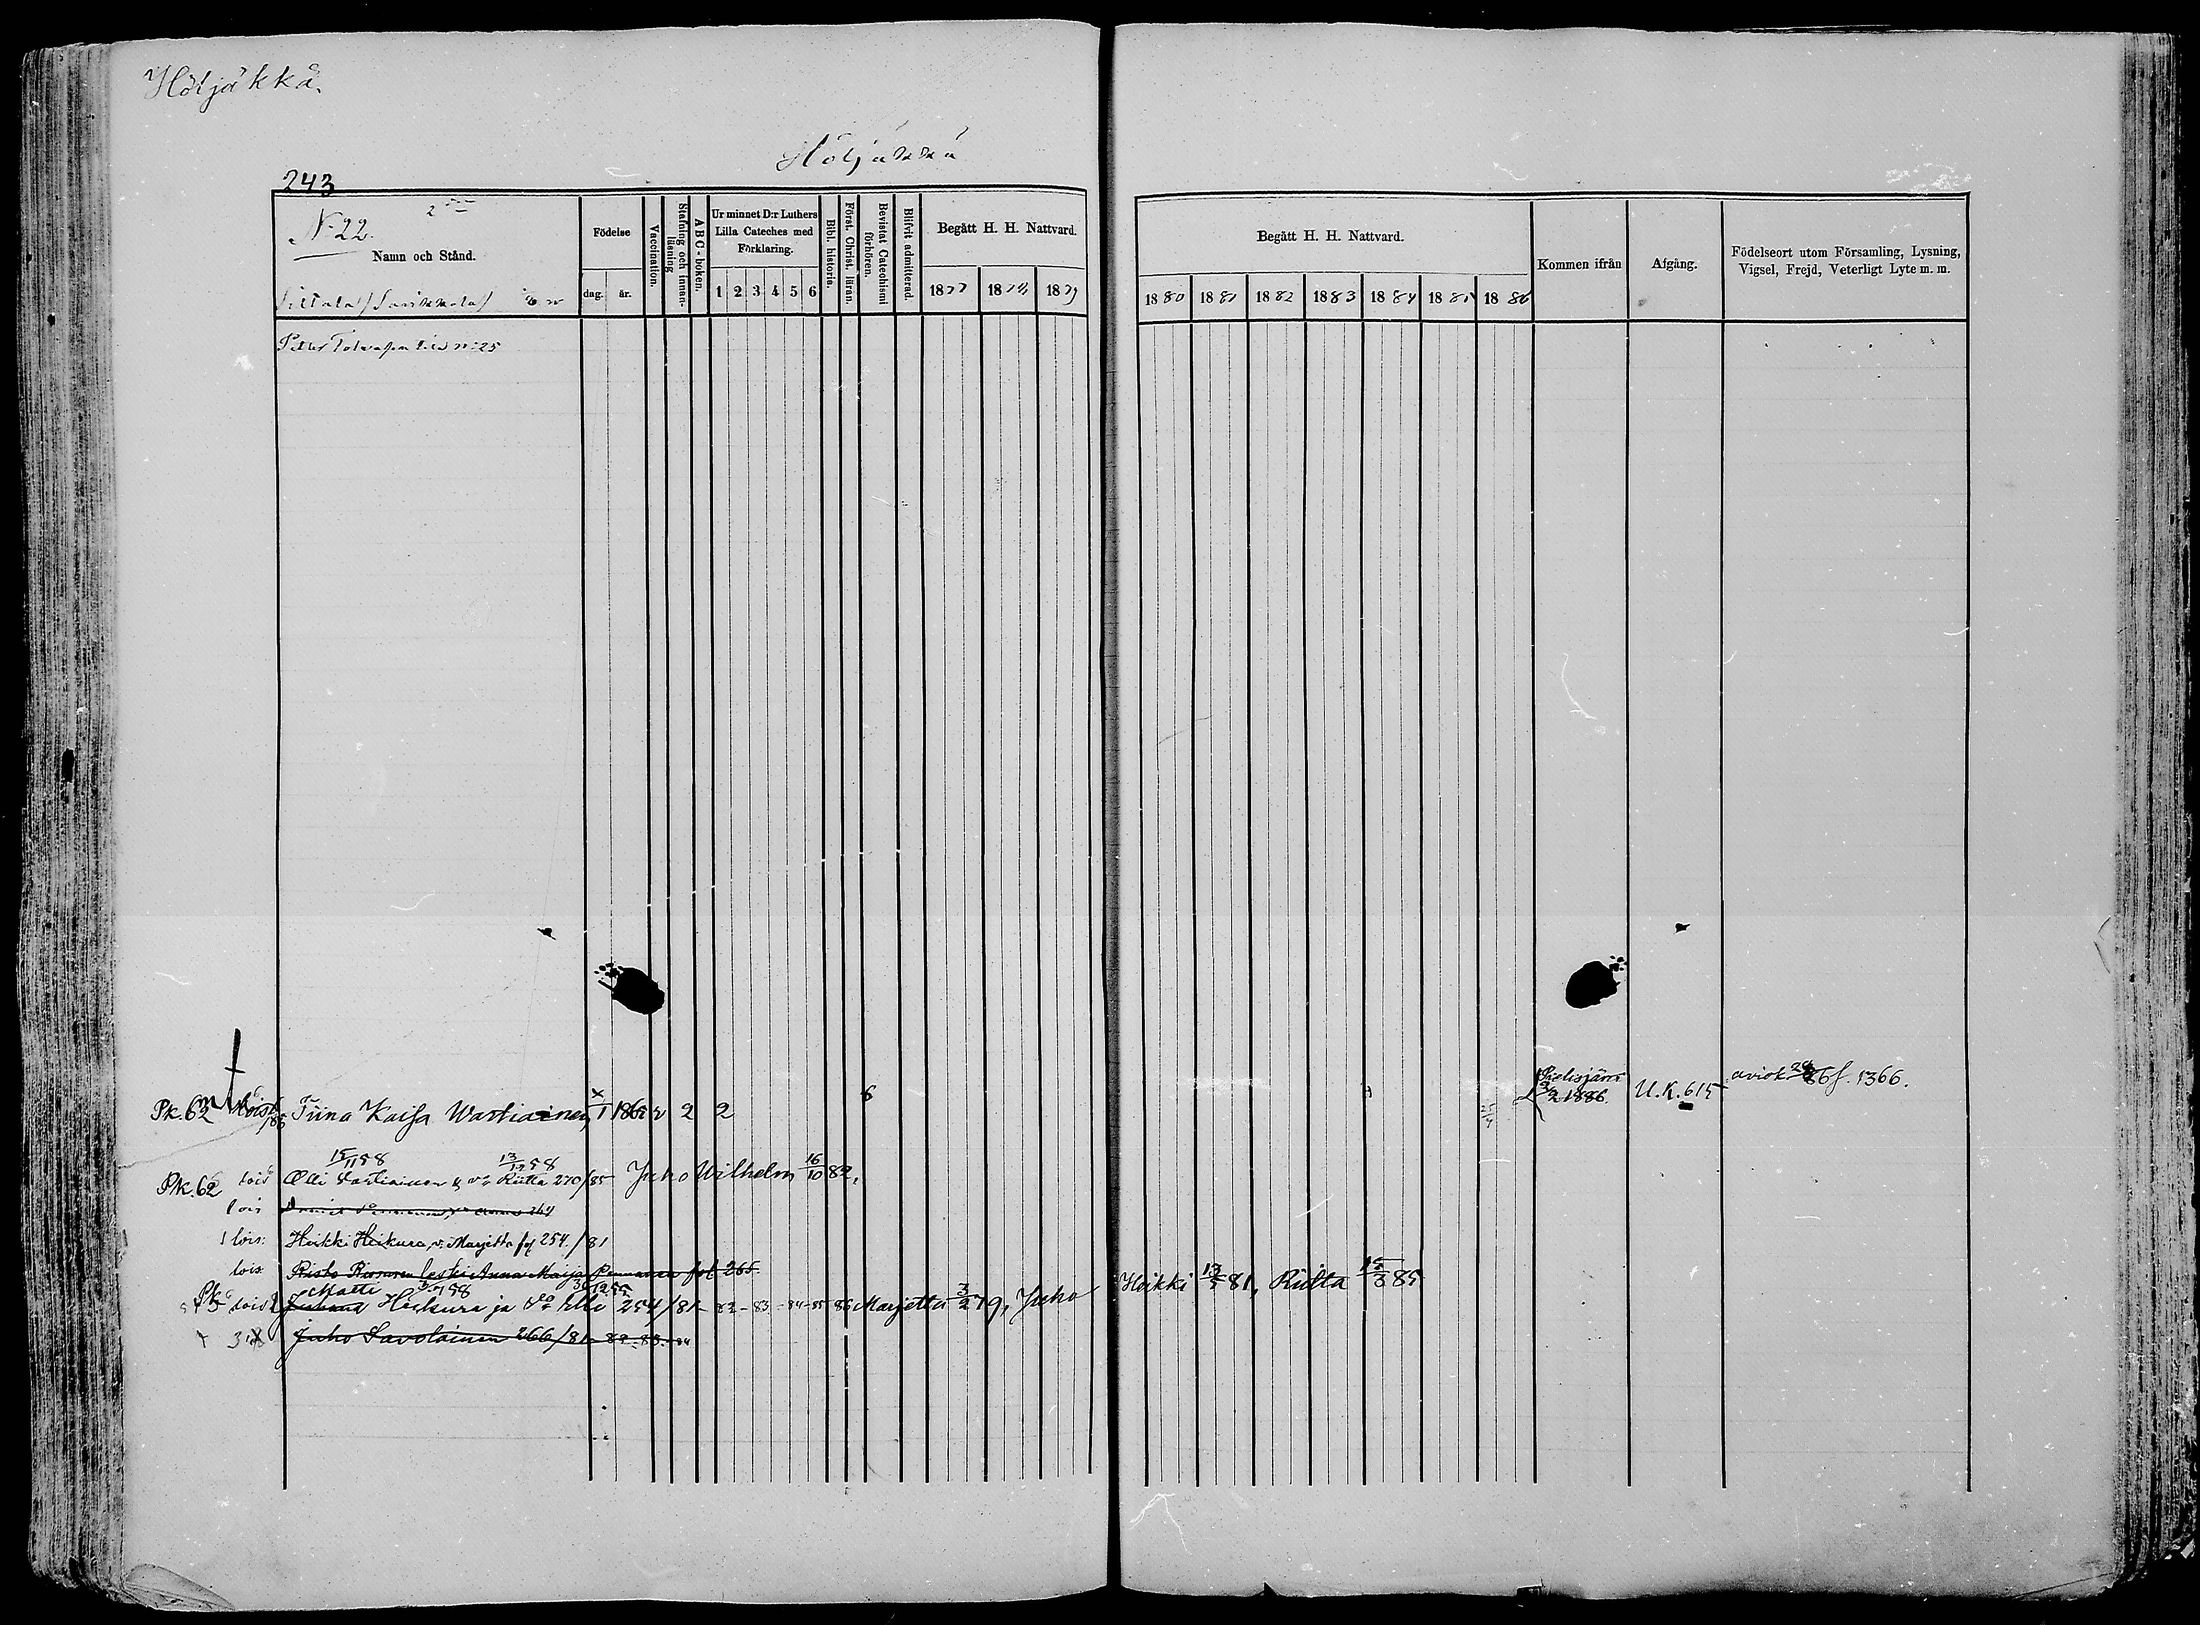 Höljäkkä.
Höljäkkä
243
No 22.
Namn och Stånd.
Födelse
dag. år.
Vaccination.
Stafning och innanläsning
ABC-boken.
Ur minnet D:r Luthers Lilla Cateches med Förklaring.
1 2 3 4 5 6
Bibl. historia.
Först. Christ. läran.
Bevistat Catechismi förhören.
Blifvit admitterad.
Begått H. H. Nattvard.
1877 1878 1879
Begått H. H. Nattvard.
1880 1881 1882 1883 1884 1885 1886
Kommen ifrån
Afgång.
Födelseort utom Församling, Lysning, Vigsel, Frejd, Veterligt Lyte m. m.
Petter Tolvanen No 25
Pk. 62 Tiina Kaisa Wartiainen 1865 v 2 2 6 2 1886. U.K. 615 aviok. 86 f. 1366.
15/11 58 13/12 58
Pk. 62 lois Olli Vartiainen Riitta 270/85 Juho Wilhelm 16/10 82.
lois
lois: Heikki Heikura, v: Marjetta fol 254./81
lois Risto Leski Anna Maija fol 265.
Pk. Matti 58
lois Heikura ja Elli 254/81-82-83-84-85-86 Marjetta 3/2 79, Juho Heikki 81, Riitta 15/3 85
Juho Savolainen 266/81-82-83-84